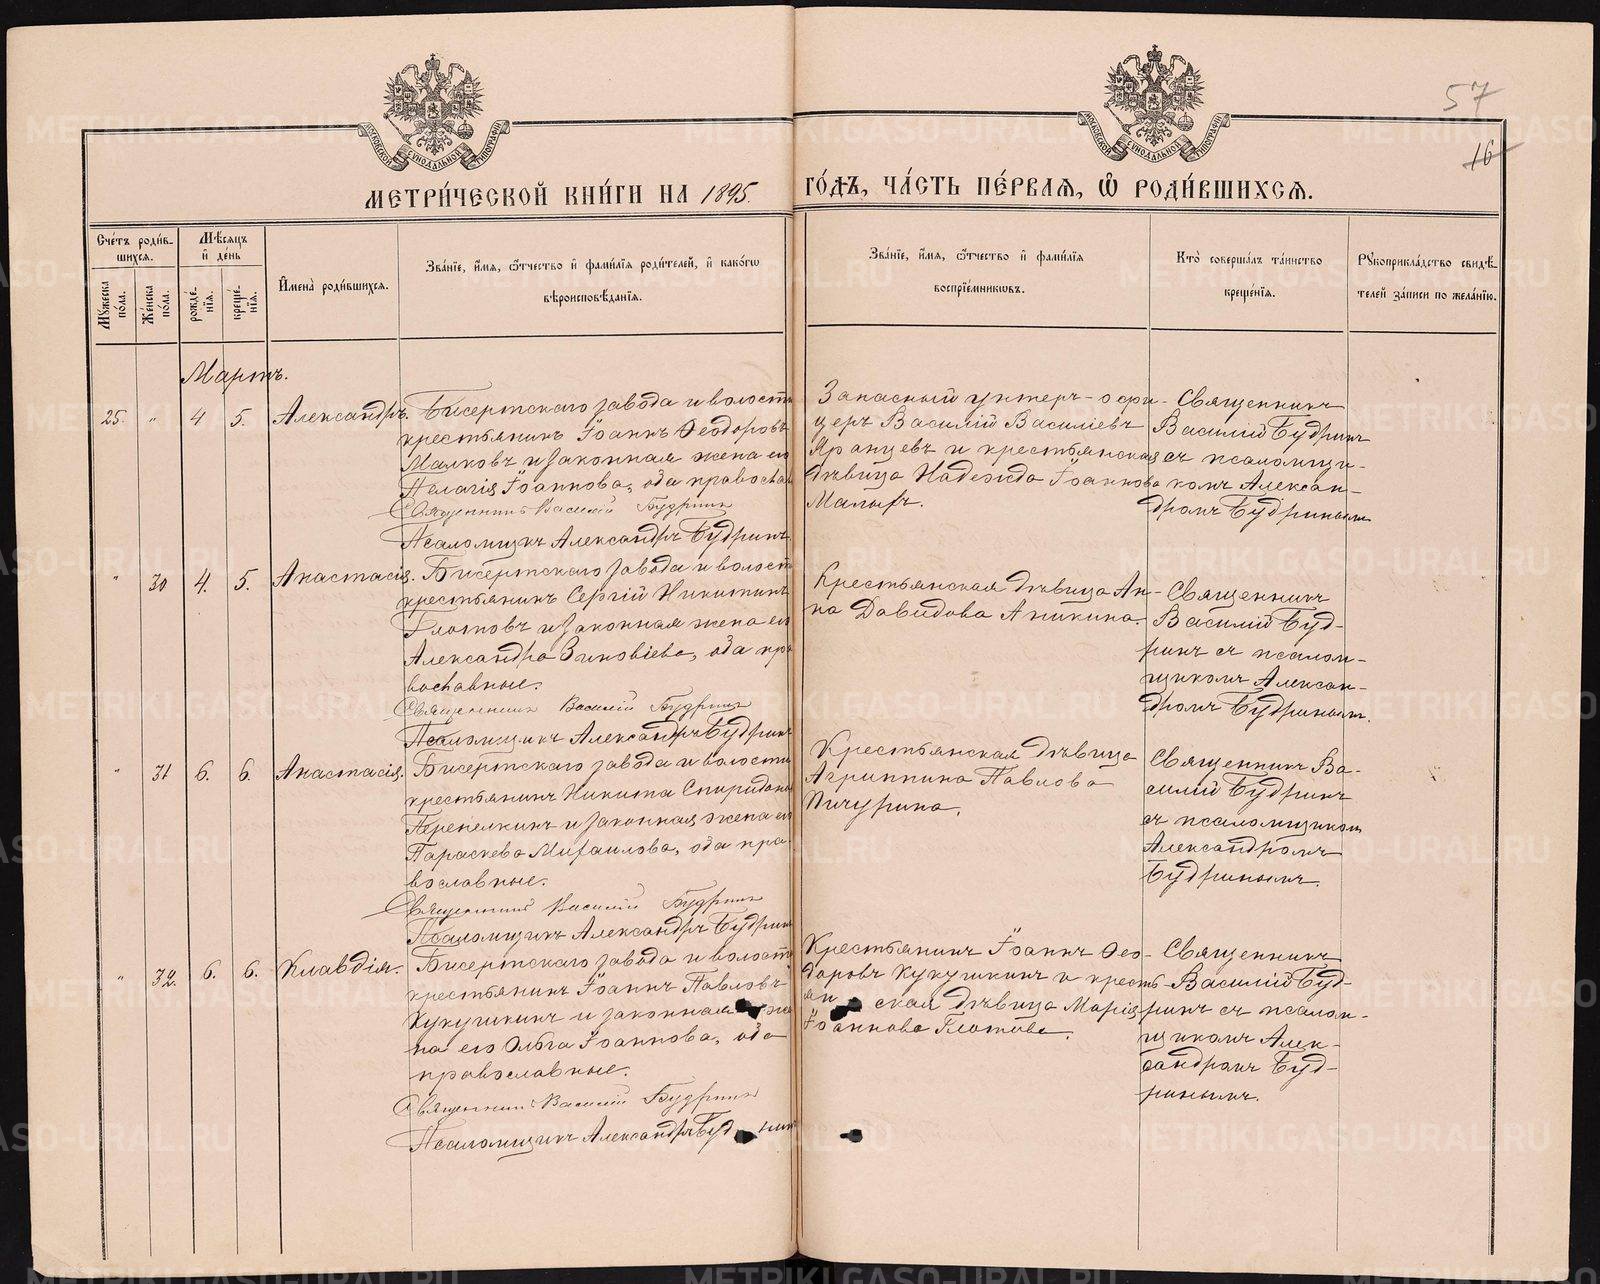 57
16
МОСКОВСКОЙ СѴНОДАЛЬНОЙ ТИПОГРАФІИ
МОСКОВСКОЙ СѴНОДАЛЬНОЙ ТИПОГРАФІИ
МЕТРИ́ЧЕСКОЙ КНИ́ГИ НА 1895.
ГО́ДЪ, ЧА́СТЬ ПЕ́РВАЯ, Ѡ РОДИ́ВШИХСЯ.
Сче́тъ роди́в-
шихся.
Му́жеска по́ла.
Же́нска по́ла.
Мѣ́сяцъ и҆ де́нь
рожде́-нія.
креще́-нія.
И҆мена̀ роди́вшихся.
Зва́ніе, и҆́мя, ѻ҆́тчество и҆ фами́лія роди́телей, и҆ како́гѡ
вѣроисповѣ́данія.
Зва́ніе, и҆́мя, ѻ҆́тчество и҆ фами́лія
воспріе́мникѡвъ.
Кто̀ соверша́лъ та́инство
креще́нія.
Рꙋкоприкла́дство свидѣ́-
телей за́писи по жела́нію.
Мартъ.
25. " 4 5. Александръ.
Бисертскаго завода и волости
крестьянинъ Іоаннъ Ѳеодоровъ
Малковъ и законная жена его
Пелагія Іоаннова, оба правосла
Священникъ Василій Будринъ
Псаломщикъ Александръ Будринъ
Запасный унтеръ-офи-
церъ Василій Василіевъ
Яранцевъ и крестьянская
дѣвица Надежда Іоаннова
Малыхъ.
Священникъ
Василій Будринъ
съ псаломщи-
комъ Алексан-
дромъ Будринымъ
" 30 4. 5. Анастасія.
Бисертскаго завода и волости
крестьянинъ Сергій Никитинъ
и законная жена его
Александра Зиновіева, оба пра
вославные.
Священникъ Василій Будринъ
Псаломщикъ Александръ Будринъ
Крестьянская дѣвица Ан-
на Давидова Аникина.
Священникъ
Василій Буд-
ринъ съ псалом-
щикомъ Алексан-
дромъ Будринымъ.
" 31 6. 6. Анастасія.
Бисертскаго завода и волости
крестьянинъ Никита Спиридоно
Перепелкинъ и законная жена его
Параскева Михаилова, оба пра
вославные.
Священникъ Василій Будринъ
Псаломщикъ Александръ Будринъ
Крестьянская дѣвица
Агриппина Павлова
Пичугина.
Священникъ Ва-
силій Будринъ
съ псаломщикомъ
Александромъ
Будринымъ.
" 32. 6. 6. Клавдія.
Бисертскаго завода и волости
крестьянинъ Іоаннъ Павловъ
Кукушкинъ и законная же
на его Ольга Іоаннова, оба
православные.
Священникъ Василій Будринъ
Псаломщикъ Александръ Будринъ
Крестьянинъ Іоаннъ Ѳео-
доровъ Кукушкинъ и кресть-
янская дѣвица Марія
Іоаннова Глотова.
Священникъ
Василій Буд-
ринъ съ псалом-
щикомъ Алек-
сандромъ Буд-
ринымъ.
METRIKI.GASO-URAL.RU